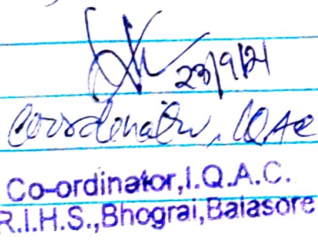 23/9/21
Coordinator, IQAC
Co-ordinator,I.Q.A.C.
R.I.H.S.,Bhograi,Balasore